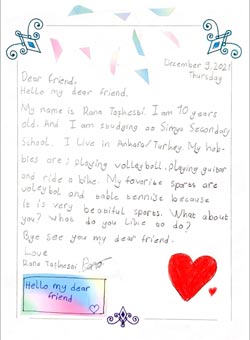 December 9, 2021
Thursday
Dear friend,
Hello my dear friend.
My name is Rana Taşhesbi. I am 10 years
old. And I am studying at Simya Secondary
School. I live in Ankara/Turkey. My hob-
bies are; playing volleyball, playing guitar
and ride a bike. My favorite sports are
voleybol and table tennise because
it is very beatiful sports. What about
you? What do you like to do?
Bye see you my dear friend.
Love
Rana Taşhesbi
Hello my dear
friend